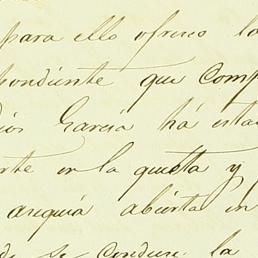 para ello ofresco la
pondiente que Comp
dios Garcia há esta
rte en la quieta y
asequiá abierta en
de se conduse la